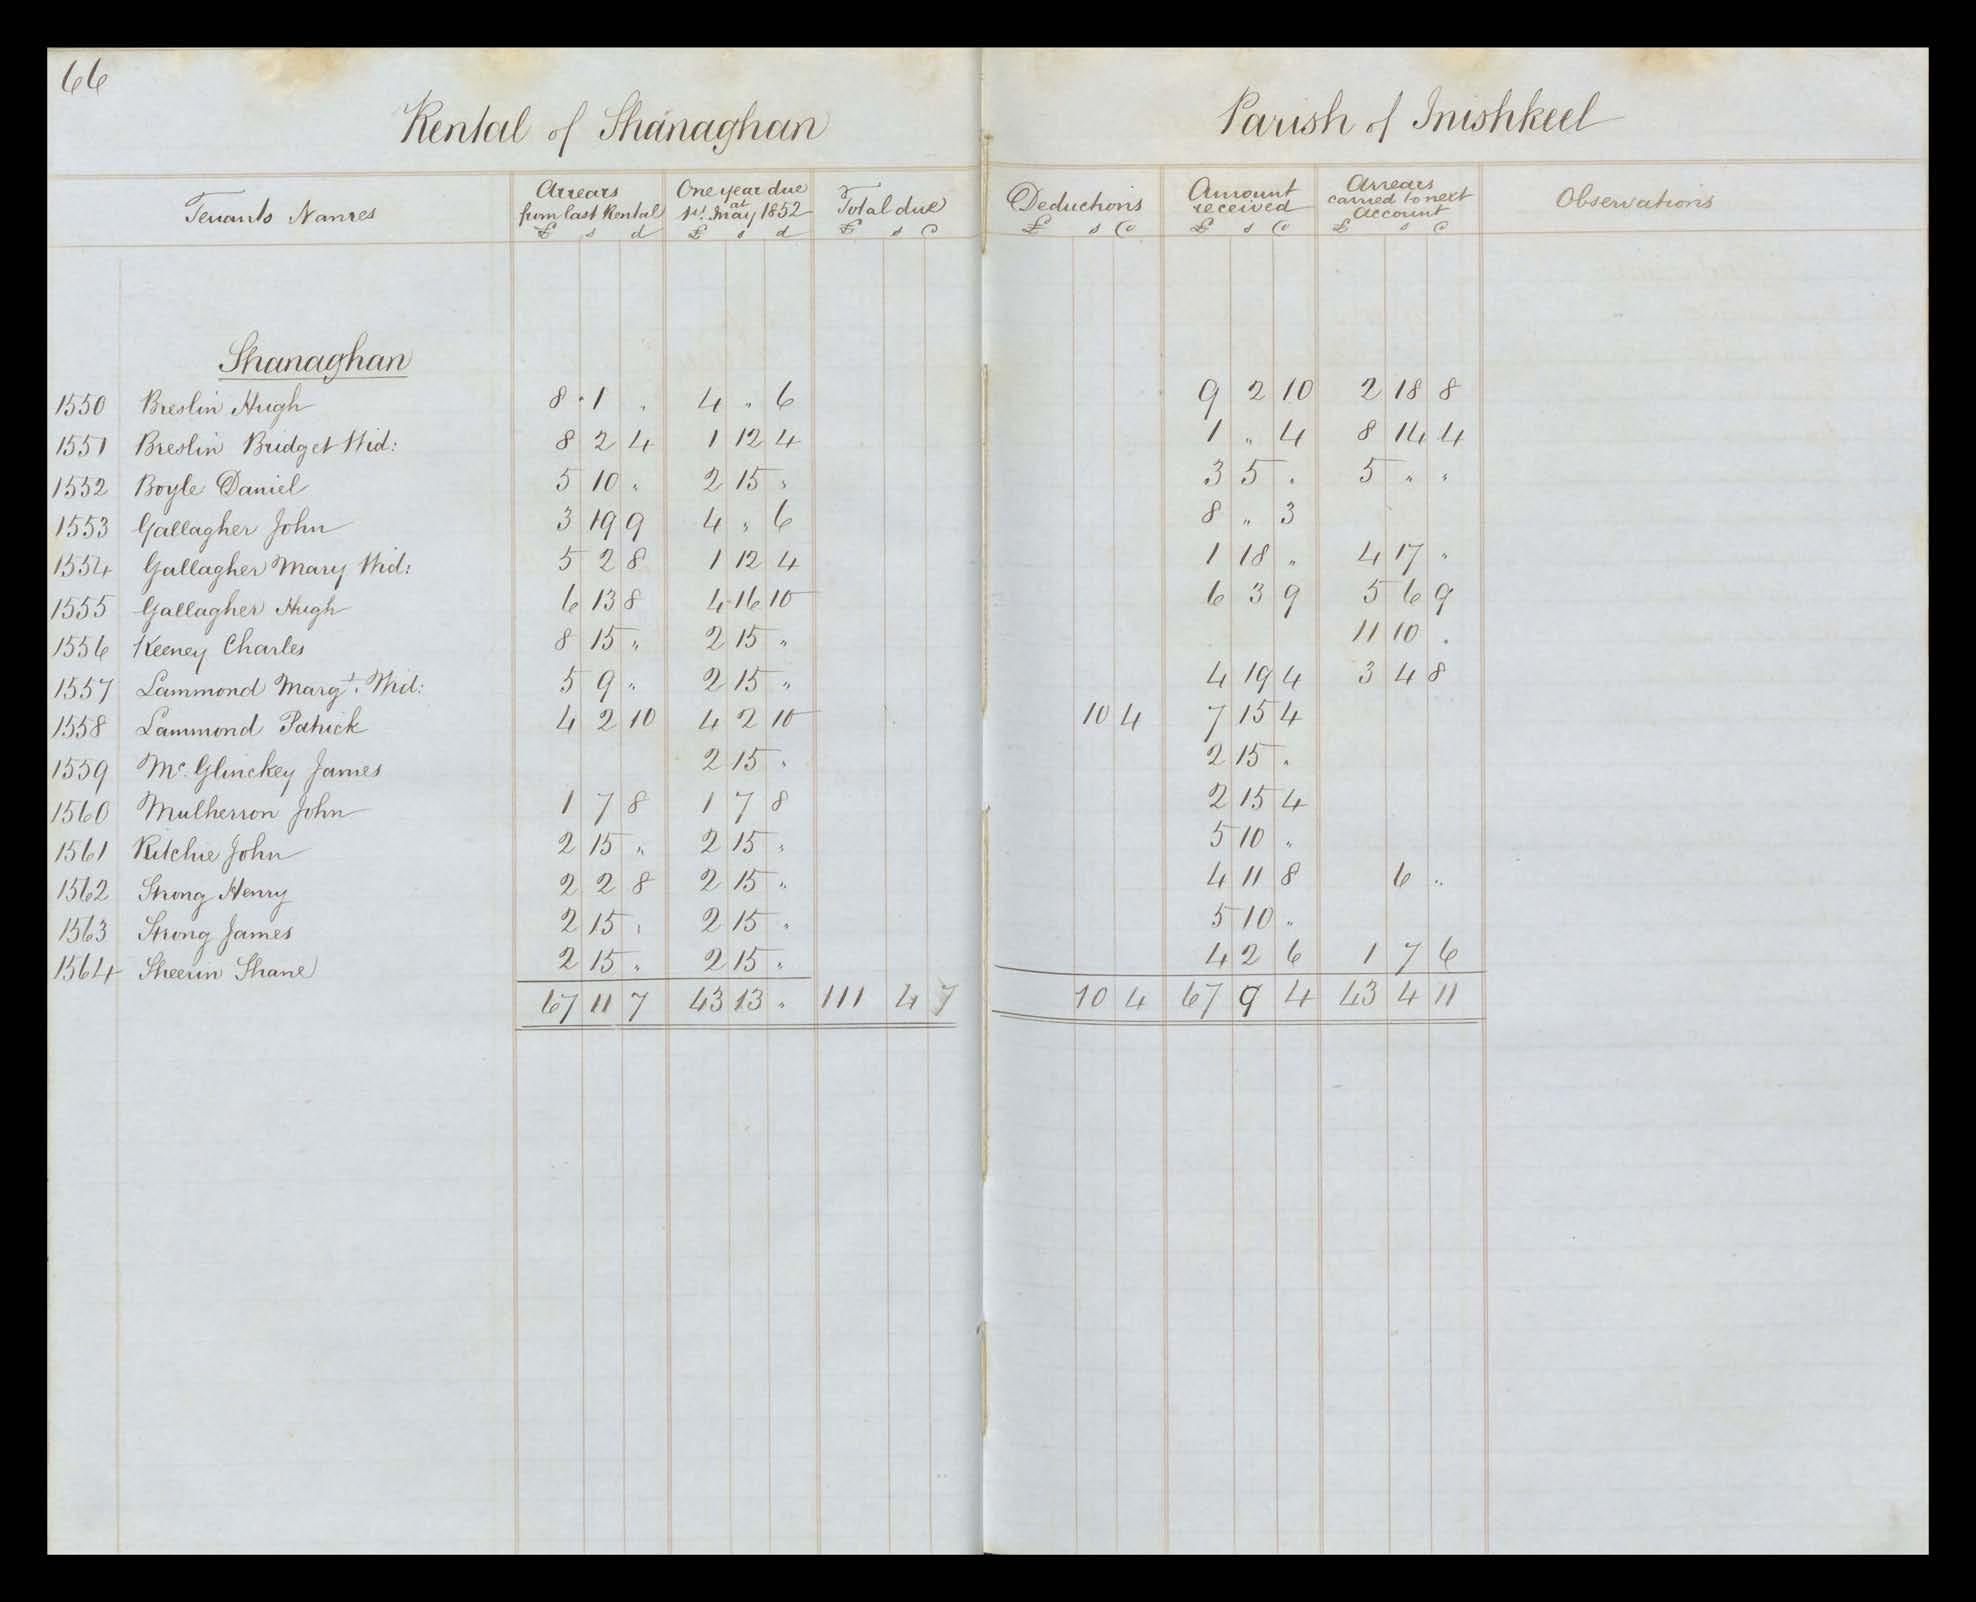 66
Rental of Shánaghan Parish of Inishkeel
Tenants Names Arrears from last Rental £ s d One year due at 1st. May 1852 £ s d Total due £ s d Deductions £ s d Amount received £ s d Arrears carried to next Account £ s d Observations
Shanaghan
1550 Breslin Hugh 8 . 1 „ 4 „ 6 9 2 10 2 18 8
1551 Breslin Bridget Wid: 8 2 4 1 12 4 1 „ 4 8 14 4
1552 Boyle Daniel 5 10 „ 2 15 „ 3 5 „ 5 „ „
1553 Gallagher John 3 19 9 4 „ 6 8 „ 3
1554 Gallagher Mary Wid: 5 2 8 1 12 4 1 18 „ 4 17 „
1555 Gallagher Hugh 6 13 8 4 16 10 6 3 9 5 6 9
1556 Keeney Charles 8 15 „ 2 15 „ 11 10 „
1557 Lammond Margt. Wid: 5 9 „ 2 15 „ 4 19 4 3 4 8
1558 Lammond Patrick 4 2 10 4 2 10 10 4 7 15 4
1559 Mc. Glinckey James 2 15 „ 2 15 „
1560 Mulherron John 1 7 8 1 7 8 2 15 4
1561 Ritchie John 2 15 „ 2 15 „ 5 10 „
1562 Strong Henry 2 2 8 2 15 „ 4 11 8 6 „
1563 Strong James 2 15 „ 2 15 „ 5 10 „
1564 Sheerin Shane 2 15 „ 2 15 „ 4 2 6 1 7 6
67 11 7 43 13 „ 111 4 7 10 4 67 9 4 43 4 11